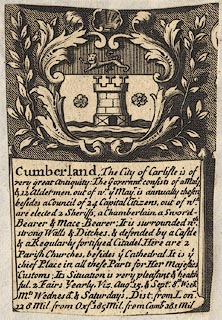 Cumberland, The City of Carlisle is of
very great Antiquity. The Governmt. consists of a May.r
& 12 Aldermen, out of wch. ye Mayr. is annually chosen
besides a Council of 24 Capital Citizens, out of wc.
are elected 2 Sheriffs, a Chamberlain, a Sword-
Bearer & Mace-Bearer: It is surrounded wth.
strong Walls & Ditches, & defended by a Castle
& a Regularly fortifyed Citadel. Here are 2
Parish Churches, besides ye Cathedral. It is ye
chief Place in all these Parts for Her Majesties
Customs: Its Situation is very pleasant & health
ful. 2 Fairs Yearly, Viz. Aug. 15, & Sept. 8. Week
Mts. Wednesd. & Saturdays. Dist. from Lon.
228 Mil. from Oxf. 185 Mil. from Camb. 181 Mil